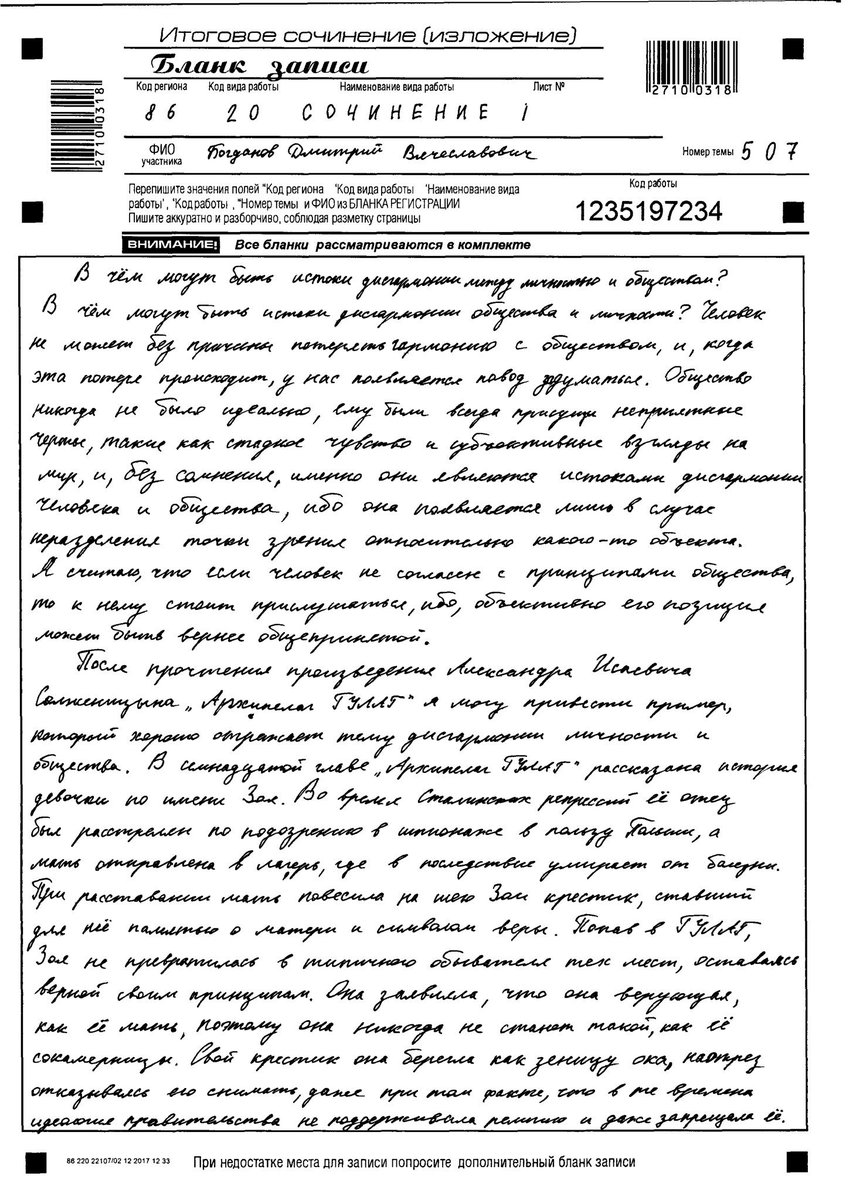 Итоговое сочинение (изложение)
Бланк записи
Код региона Код вида работы Наименование вида работы Лист №
86 20 СОЧИНЕНИЕ 1
2710 0318
2710 0318
ФИО участника Богданов Дмитрий Вячеславович Номер темы 507
Перепишите значения полей "Код региона "Код вида работы "Наименование вида
работы", "Код работы , "Номер темы и ФИО из БЛАНКА РЕГИСТРАЦИИ
Пишите аккуратно и разборчиво, соблюдая разметку страницы
Код работы
1235197234
ВНИМАНИЕ! Все бланки рассматриваются в комплекте
В чём могут быть истоки дисгармонии между личностью и обществом?
В чём могут быть истоки дисгармонии общества и личности? Человек
не может без причины потерять гармонию с обществом, и, когда
эта потеря происходит, у нас появляется повод задуматься. Общество
никогда не было идеально, ему были всегда присущи неприятные
черты, такие как стадное чувство и субъективные взгляды на
мир, и, без сомнения, именно они являются истоками дисгармонии
человека и общества, ибо она появляется лишь в случае
неразделения точки зрения относительно какого-то объекта.
Я считаю, что если человек не согласен с принципами общества,
то к нему стоит прислушаться, ибо, объективно его позиция
может быть вернее общепринятой.
После прочтения произведения Александра Исаевича
Солженицына „Архипелаг ГУЛАГ" я могу привести пример,
который хорошо отражает тему дисгармонии личности и
общества. В семнадцатой главе „Архипелаг ГУЛАГ" рассказана история
девочки по имени Зоя. Во время Сталинских репрессий её отец
был расстрелен по подозрению в шпионаже в пользу Польши, а
мать отправлена в лагерь, где в последствие умирает от болезни.
При расставании мать повесила на шею Зои крестик, ставший
для неё памятью о матери и символом веры. Попав в ГУЛАГ,
Зоя не превратилась в типичного обывателя тех мест, оставаясь
верной своим принципам. Она заявила, что она верующая,
как её мать, поэтому она никогда не станет такой, как её
сокамерницы. Свой крестик она берегла как зеницу ока, наотрез
отказываясь его снимать, даже при том факте, что в те времена
идеология правительства не поддерживала религию и даже запрещала её.
86 220 22107/02 12 2017 12 33
При недостатке места для записи попросите дополнительный бланк записи